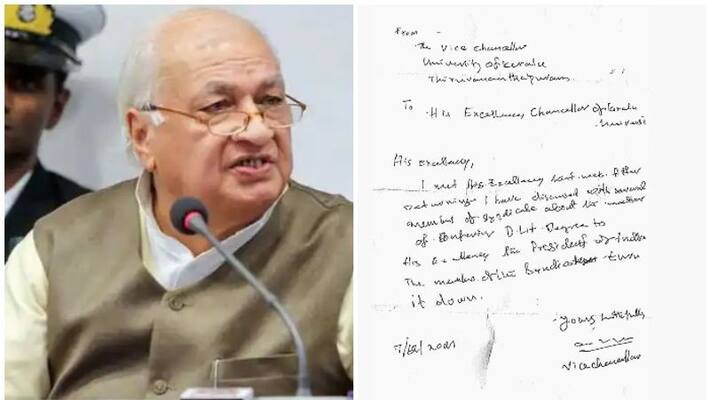 From -
The Vice Chancellor
University of Kerala
Thiruvananthapuram
To His Excellency Chancellor of Kerala
His Excellency,
I met His Excellency After
I have discussed with several
member of Syndicate about the matter
of D.Lit. Degree to
His Excellency the President of India
The members of the Syndicate turn
it down.
yours faithfully
7/12/2021
Vice Chancellor